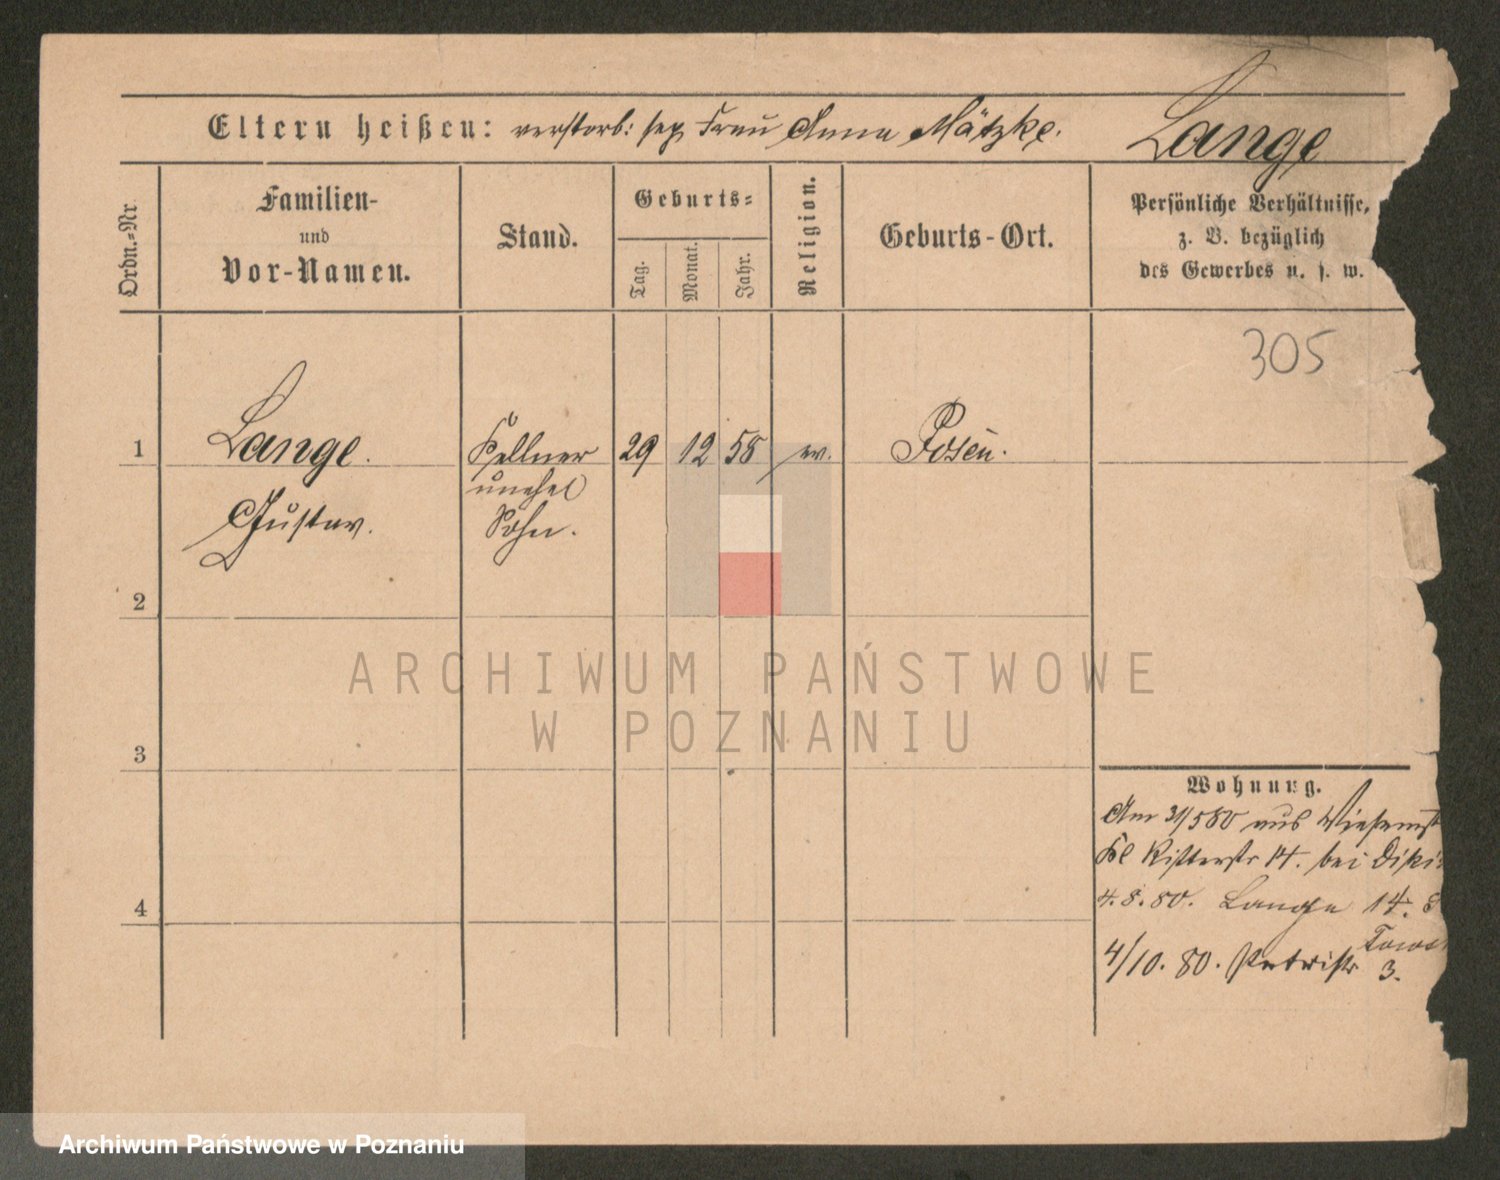 Eltern heißen: verstorb: sep Frau Anna Mätzke. Lange
Ordn.=Nr
Familien-
und
Vor-Namen.
Stand.
Geburts=
Tag.
Monat.
Jahr.
Religion.
Geburts-Ort.
Persönliche Verhältnisse,
z. B. bezüglich
des Gewerbes u. s. w.
305
1 Lange. Kellner 29 12 58 ev. Posen.
unehel
Gustav. Sohn.
2
3
4
Wohnung.
Am 31/5 80 aus Wiesenst
Kl Ritterstr 14. bei
4. 8. 80. Lange 14.
4/10. 80. Petristr 3.
ARCHIWUM PAŃSTWOWE
W POZNANIU
Archiwum Państwowe w Poznaniu